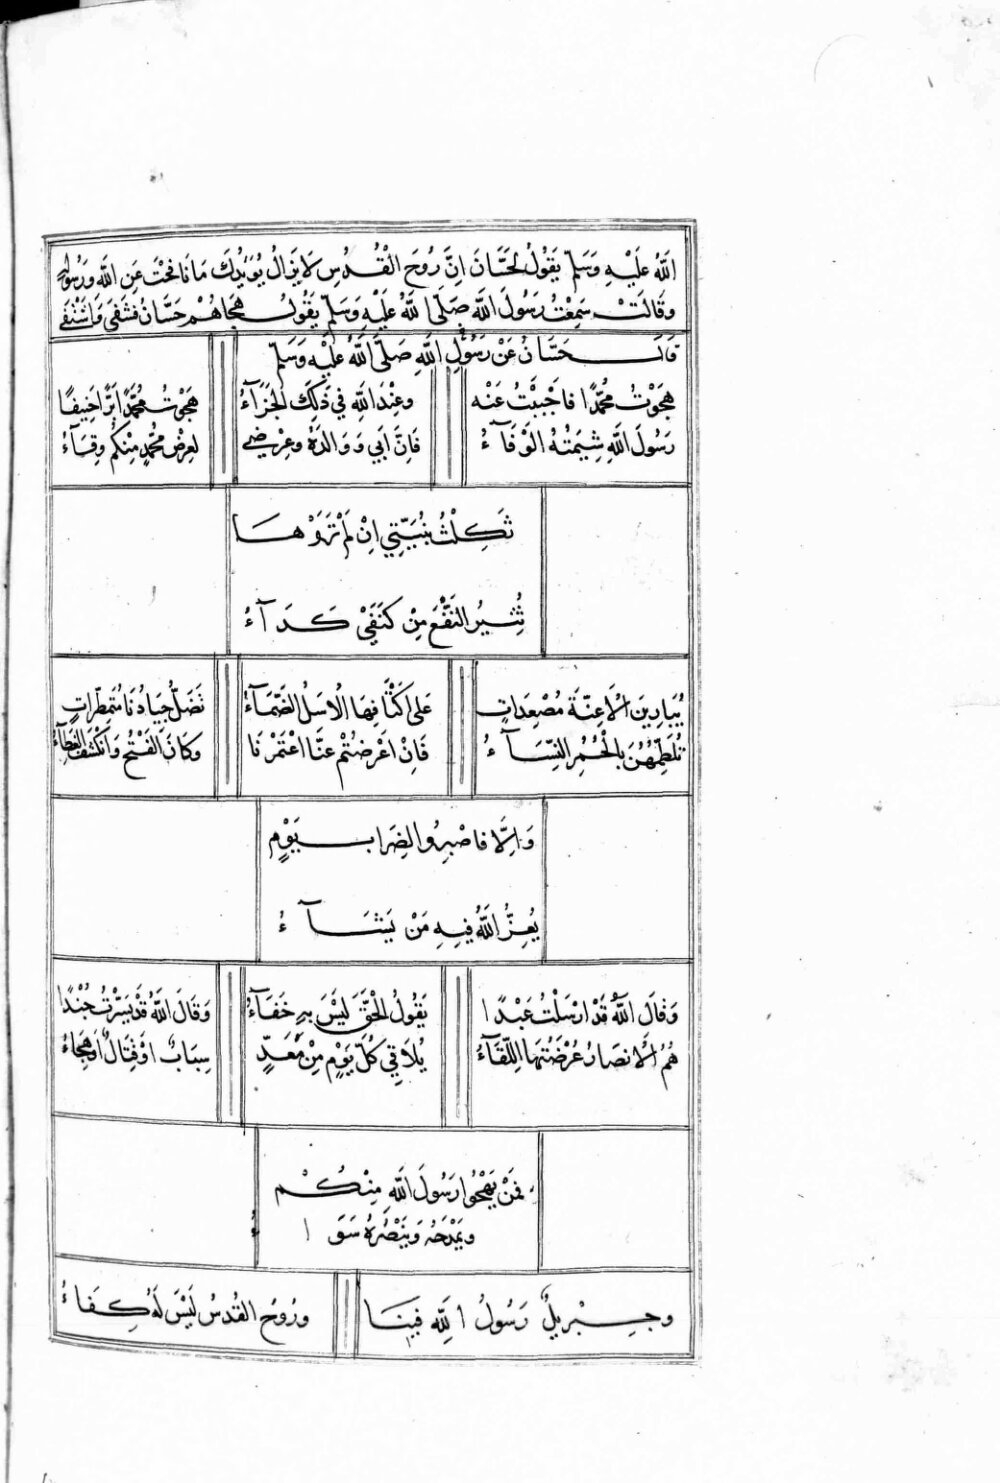 اللهُ عَلَيْهِ وَسَلَّمَ يَقُولُ لِحَسَّانَ اِنَّ رُوحَ الْقُدُسِ لَا يَزَالُ يُؤَيِّدُكَ مَا نَافَحْتَ عَنِ اللهِ وَرَسُولِهِ
وَقَالَتْ سَمِعْتُ رَسُولَ اللهِ صَلَّى اللهُ عَلَيْهِ وَسَلَّمَ يَقُولُ هَجَاهُمْ حَسَّانُ فَشَفَى وَاشْتَفَى
قَالَ حَسَّانُ عَنْ رَسُولِ اللهِ صَلَّى اللهُ عَلَيْهِ وَسَلَّمَ
هَجَوْتَ مُحَمَّدًا فَاجَبْتُ عَنْهُ وَعِنْدَ اللهِ فِي ذَلِكَ الْجَزَآءُ هَجَوْتَ مُحَمَّدًا بَرًّا حَنِيفًا
رَسُولَ اللهِ شِيمَتُهُ الْوَفَآءُ فَاِنَّ اَبِي وَوَالِدَهُ وَعِرْضِي لِعِرْضِ مُحَمَّدٍ مِنْكُمْ وِقَآءُ
ثَكِلْتُ بُنَيَّتِي اِنْ لَمْ تَرَوْهَا
تُثِيرُ النَّقْعَ مِنْ كَنَفَيْ كَدَآءُ
يُبَارِينَ الْاَعِنَّةَ مُصْعِدَاتٍ عَلَى اَكْتَافِهَا الْاَسَلُ الظِّمَآءُ تَضَلُّ جِيَادُنَا مُتَمَطِّرَاتٍ
تُلَطِّمُهُنَّ بِالْخُمُرِ النِّسَآءُ فَاِنْ اَعْرَضْتُمْ عَنَّا اعْتَمَرْنَا وَكَانَ الْفَتْحُ وَانْكَشَفَ الْغِطَآءُ
وَاِلَّا فَاصْبِرُوا لِضِرَابِ يَوْمٍ
يُعِزُّ اللهُ فِيهِ مَنْ يَشَآءُ
وَقَالَ اللهُ قَدْ اَرْسَلْتُ عَبْدًا يَقُولُ الْحَقَّ لَيْسَ بِهِ خَفَآءُ وَقَالَ اللهُ قَدْ يَسَّرْتُ جُنْدًا
هُمُ الْاَنْصَارُ عُرْضَتُهَا اللِّقَآءُ يُلَاقِي كُلَّ يَوْمٍ مِنْ مَعَدٍّ سِبَابٌ اَوْ قِتَالٌ اَوْ هِجَاءُ
فَمَنْ يَهْجُوا رَسُولَ اللهِ مِنْكُمْ
وَيَمْدَحُهُ وَيَنْصُرُهُ سَوَاءُ
وَجِبْرِيلٌ رَسُولُ اللهِ فِينَا وَرُوحُ الْقُدُسِ لَيْسَ لَهُ كِفَاءُ